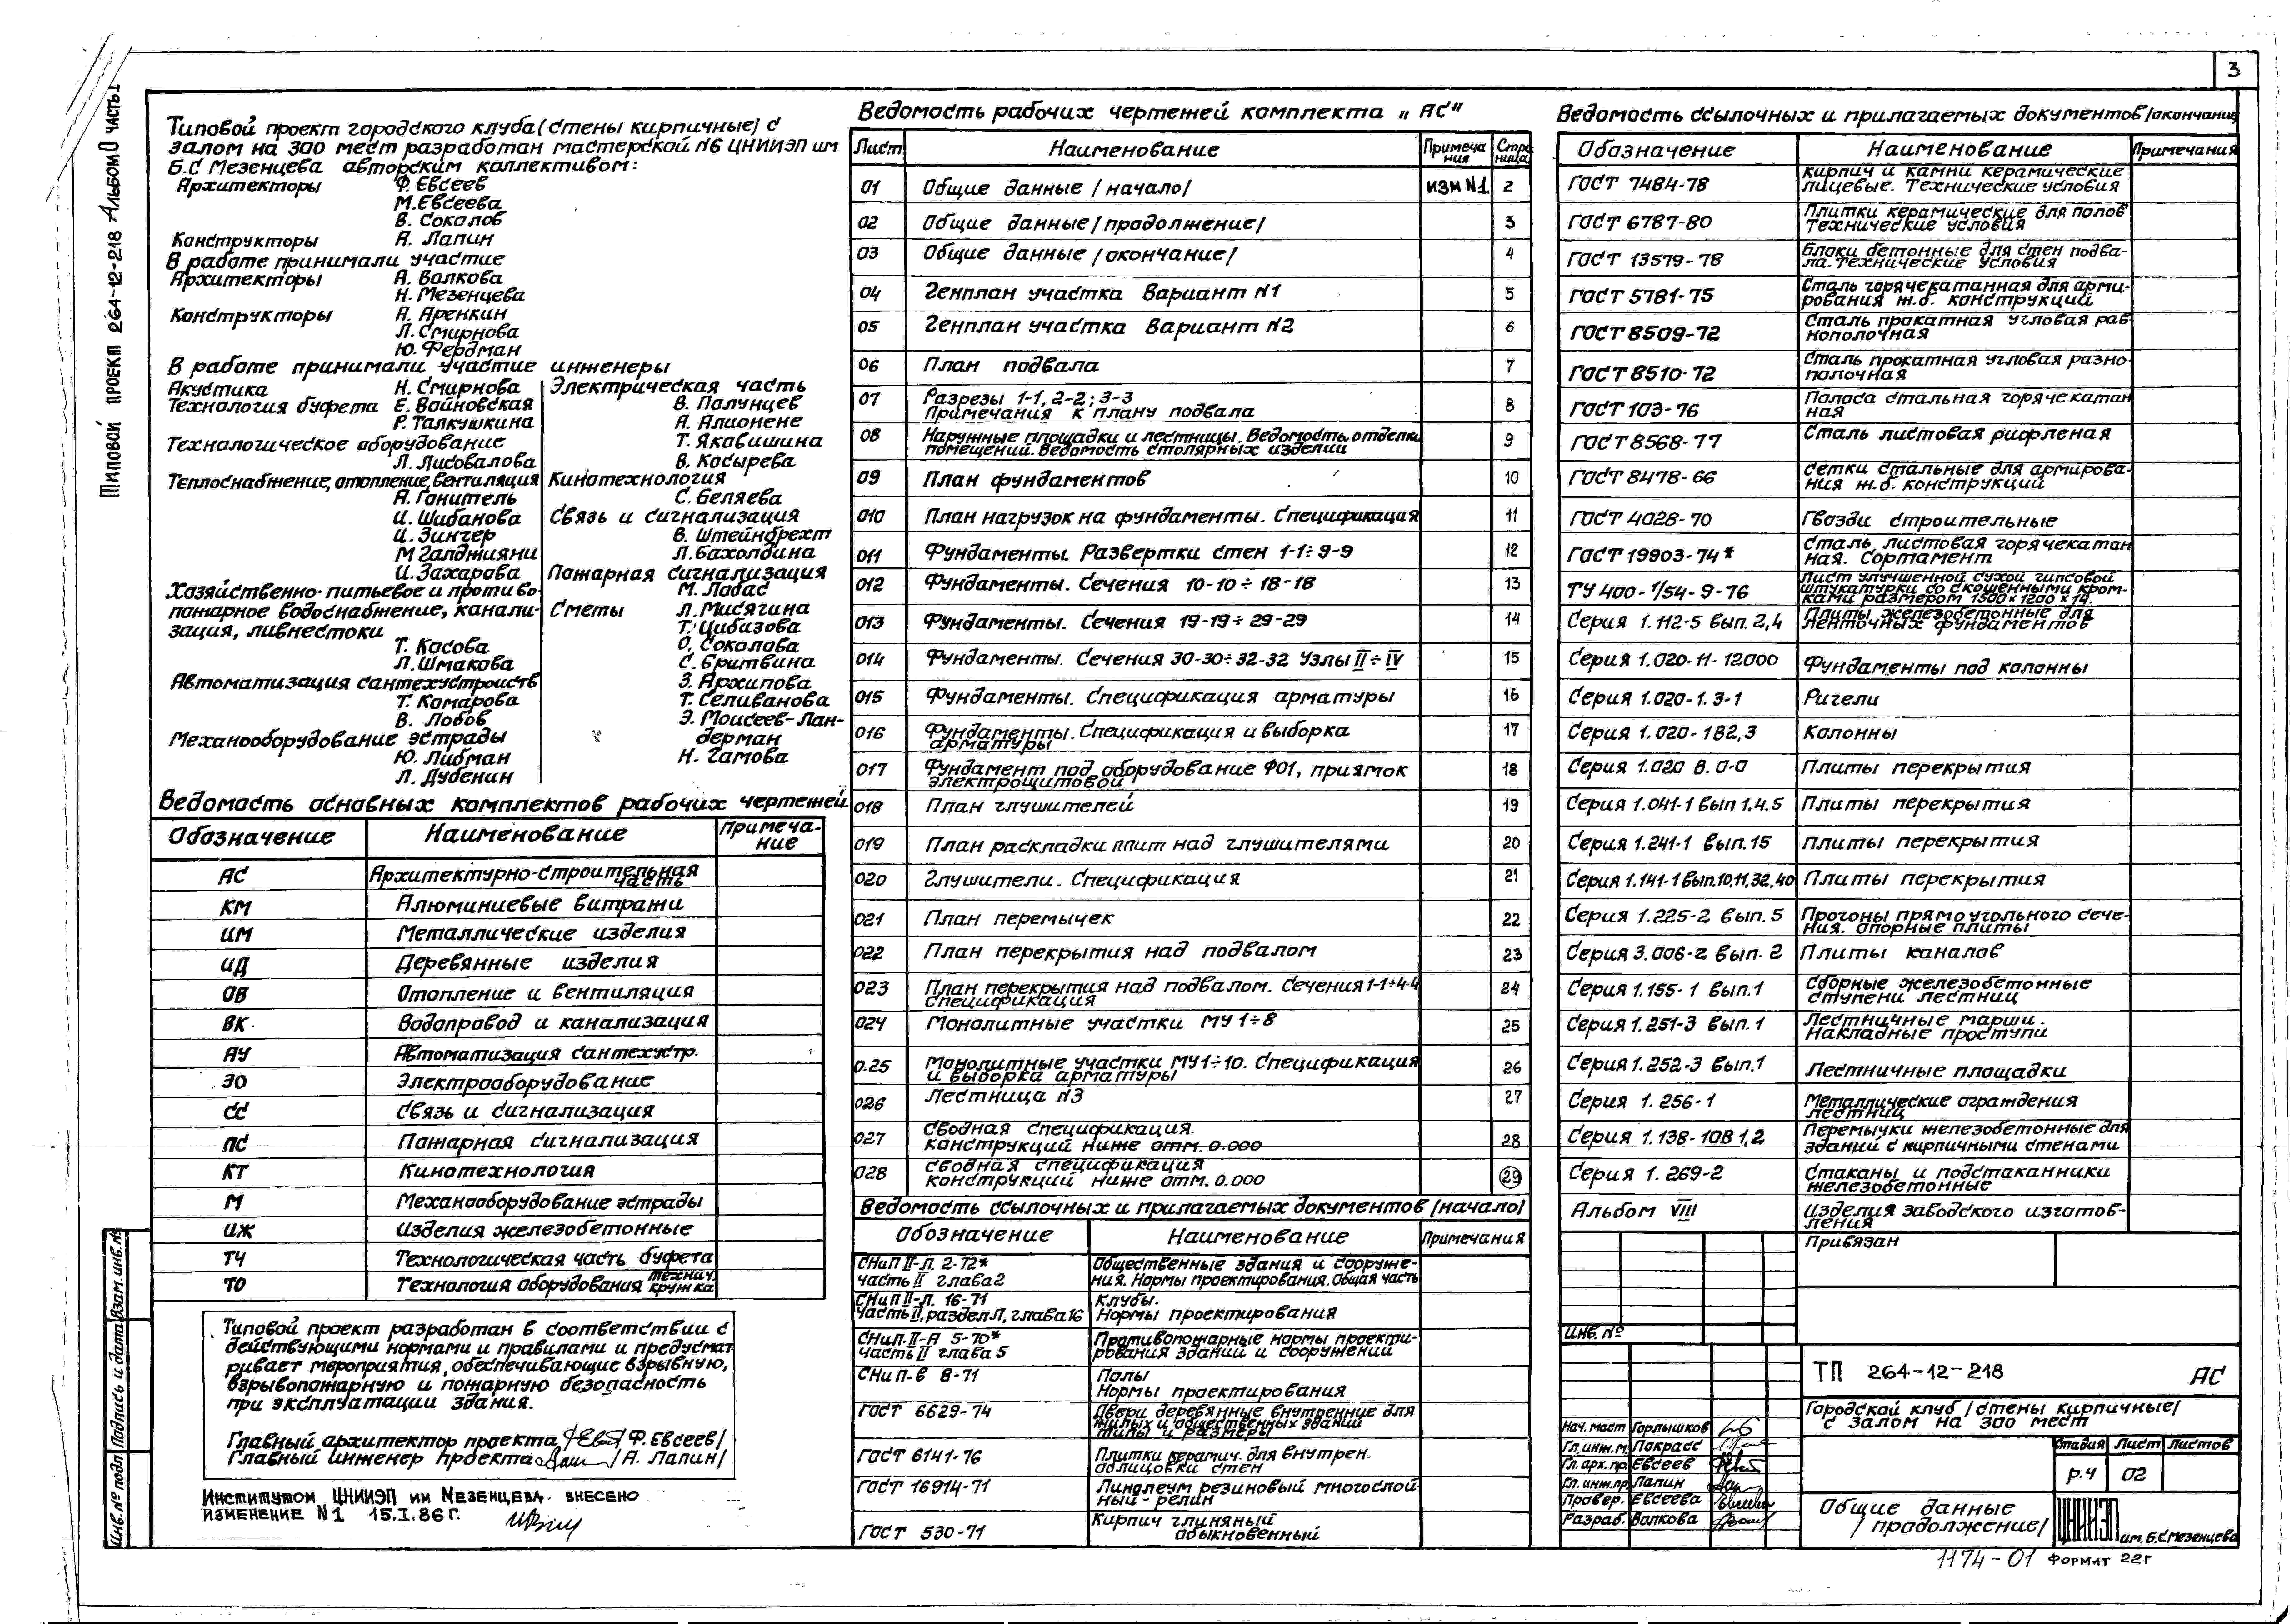 3
Типовой проект 264-12-218 Альбом 0 часть 1
Типовой проект городского клуба (стены кирпичные) с
залом на 300 мест разработан мастерской №6 ЦНИИЭП им.
Б.С Мезенцева авторским коллективом:
Архитекторы Ф. Евсеев
М. Евсеева
В. Соколов
Конструкторы А. Лапин
В работе принимали участие
Архитекторы А. Волкова
Н. Мезенцева
Конструкторы А. Аренкин
Л. Смирнова
Ю. Фердман
В работе принимали участие инженеры
Акустика Н. Смирнова
Технология буфета Е. Войновская
Р. Талкушкина
Технологическое оборудование
Л. Лисовалова
Теплоснабжение, отопление, вентиляция
А. Ганитель
И. Шибанова
И. Зингер
М Галджияни
И. Захарова
Хозяйственно-питьевое и противо-
пожарное водоснабжение, канали-
зация, ливнестоки
Т. Косова
Л. Шмакова
Автоматизация сантехустройств
Т. Комарова
В. Лобов
Механооборудование эстрады
Ю. Либман
Л. Дубенин
Электрическая часть
В. Полунцев
А. Алионене
Т. Яковишина
В. Косырева
Кинотехнология
С. Беляева
Связь и сигнализация
В. Штейнбрехт
Л. Бахолдина
Пожарная сигнализация
М. Лабас
Сметы Л. Мисягина
Т. Цибизова
О. Соколова
С. Бритвина
З. Архипова
Т. Селиванова
Э. Моисеев-Лан-
дерман
Н. Гамова
Ведомость основных комплектов рабочих чертежей
Обозначение Наименование Примеча-
ние
АС Архитектурно-строительная
часть
КМ Алюминиевые витражи
ИМ Металлические изделия
ИД Деревянные изделия
ОВ Отопление и вентиляция
ВК Водопровод и канализация
АУ Автоматизация сантехустр.
ЭО Электрооборудование
СС Связь и сигнализация
ПС Пожарная сигнализация
КТ Кинотехнология
М Механооборудование эстрады
ИЖ Изделия железобетонные
ТЧ Технологическая часть буфета
ТО Технология оборудования технич. кружка
Типовой проект разработан в соответствии с
действующими нормами и правилами и предусмат
ривает мероприятия, обеспечивающие взрывную,
взрывопожарную и пожарную безопасность
при эксплуатации здания.
Главный архитектор проекта /Ф. Евсеев/
Главный инженер проекта /А. Лапин/
Институтом ЦНИИЭП им Мезенцева внесено
изменение N1 15.I.86г.
Инв. № подл. Подпись и дата Взам. инв. №
Ведомость рабочих чертежей комплекта „АС"
Лист Наименование Примеча
ния Стра
ница
01 Общие данные /начало/ изм N1 2
02 Общие данные /продолжение/ 3
03 Общие данные /окончание/ 4
04 Генплан участка Вариант N1 5
05 Генплан участка Вариант N2 6
06 План подвала 7
07 Разрезы 1-1, 2-2; 3-3
Примечания к плану подвала 8
08 Наружные площадки и лестницы. Ведомость отделки
помещений. Ведомость столярных изделий 9
09 План фундаментов 10
010 План нагрузок на фундаменты. Спецификация 11
011 Фундаменты. Развертки стен 1-1÷9-9 12
012 Фундаменты. Сечения 10-10÷18-18 13
013 Фундаменты. Сечения 19-19÷29-29 14
014 Фундаменты. Сечения 30-30÷32-32 Узлы II÷IV 15
015 Фундаменты. Спецификация арматуры 16
016 Фундаменты. Спецификация и выборка
арматуры 17
017 Фундамент под оборудование Ф01, приямок
электрощитовой 18
018 План глушителей 19
019 План раскладки плит над глушителями 20
020 Глушители. Спецификация 21
021 План перемычек 22
022 План перекрытия над подвалом 23
023 План перекрытия над подвалом. Сечения 1-1÷4-4
Спецификация 24
024 Монолитные участки МУ 1÷8 25
0.25 Монолитные участки МУ1÷10. Спецификация
и выборка арматуры 26
026 Лестница N3 27
027 Сводная спецификация.
конструкций ниже отм. 0.000 28
028 Сводная спецификация
конструкций ниже отм. 0.000 29
Ведомость ссылочных и прилагаемых документов /начало/
Обозначение Наименование Примечания
СНиП II-Л. 2-72* Общественные здания и сооруже-
часть II глава 2 ния. Нормы проектирования. Общая часть
СНиП II-Л. 16-71 Клубы.
часть II, раздел Л, глава 16 Нормы проектирования
СНиП. II-А 5-70* Противопожарные нормы проекти-
часть II глава 5 рования зданий и сооружений
СНиП-В 8-71 Полы
Нормы проектирования
ГОСТ 6629-74 Двери деревянные внутренние для
жилых и общественных зданий
типы и размеры
ГОСТ 6141-76 Плитки керамич. для внутрен.
облицовки стен
ГОСТ 16914-71 Линолеум резиновый многослой-
ный - релин
ГОСТ 530-71 Кирпич глиняный
обыкновенный
Ведомость ссылочных и прилагаемых документов /окончание/
Обозначение Наименование Примечания
ГОСТ 7484-78 Кирпич и камни керамические
лицевые. Технические условия
ГОСТ 6787-80 Плитки керамические для полов
Технические условия
ГОСТ 13579-78 Блоки бетонные для стен подва-
ла. Технические условия
ГОСТ 5781-75 Сталь горячекатанная для арми-
рования ж.б. конструкций
ГОСТ 8509-72 Сталь прокатная угловая рав
нополочная
ГОСТ 8510-72 Сталь прокатная угловая разно-
полочная
ГОСТ 103-76 Полоса стальная горячекатан
ная
ГОСТ 8568-77 Сталь листовая рифленая
ГОСТ 8478-66 Сетки стальные для армирова-
ния ж.б. конструкций
ГОСТ 4028-70 Гвозди строительные
ГОСТ 19903-74* Сталь листовая горячекатан
ная. Сортамент
ТУ 400-1/54-9-76 Лист улучшенной сухой гипсовой
штукатурки со скошенными кром-
ками размером 1500×1200×14.
Серия 1.112-5 вып. 2,4 Плиты железобетонные для
ленточных фундаментов
Серия 1.020-11-12000 Фундаменты под колонны
Серия 1.020-1.3-1 Ригели
Серия 1.020-182,3 Колонны
Серия 1.020 В. 0-0 Плиты перекрытия
Серия 1.041-1 вып 1.4.5 Плиты перекрытия
Серия 1.241-1 вып. 15 Плиты перекрытия
Серия 1.141-1 вып. 10,11,32,40 Плиты перекрытия
Серия 1.225-2 вып. 5 Прогоны прямоугольного сече-
ния. опорные плиты
Серия 3.006-2 вып. 2 Плиты каналов
Серия 1.155-1 вып. 1 Сборные железобетонные
ступени лестниц
Серия 1.251-3 вып. 1 Лестничные марши.
Накладные проступи
Серия 1.252-3 вып. 1 Лестничные площадки
Серия 1.256-1 Металлические ограждения
лестниц
Серия 1.138-10В 1,2 Перемычки железобетонные для
зданий с кирпичными стенами
Серия 1.269-2 Стаканы и подстаканники
железобетонные
Альбом VIII Изделия заводского изготов-
ления
Привязан
Инв. №
ТП 264-12-218 АС
Городской клуб /стены кирпичные/
с залом на 300 мест
Нач. маст Горлышков
Гл. инж. м. Покрасс
Гл. арх. пр. Евсеев
Гл. инж. пр. Лапин
Провер. Евсеева
Разраб. Волкова
Стадия Лист Листов
р.ч 02
Общие данные
/продолжение/
ЦНИИЭП
им. Б.С. Мезенцева
1174-01 Формат 22г